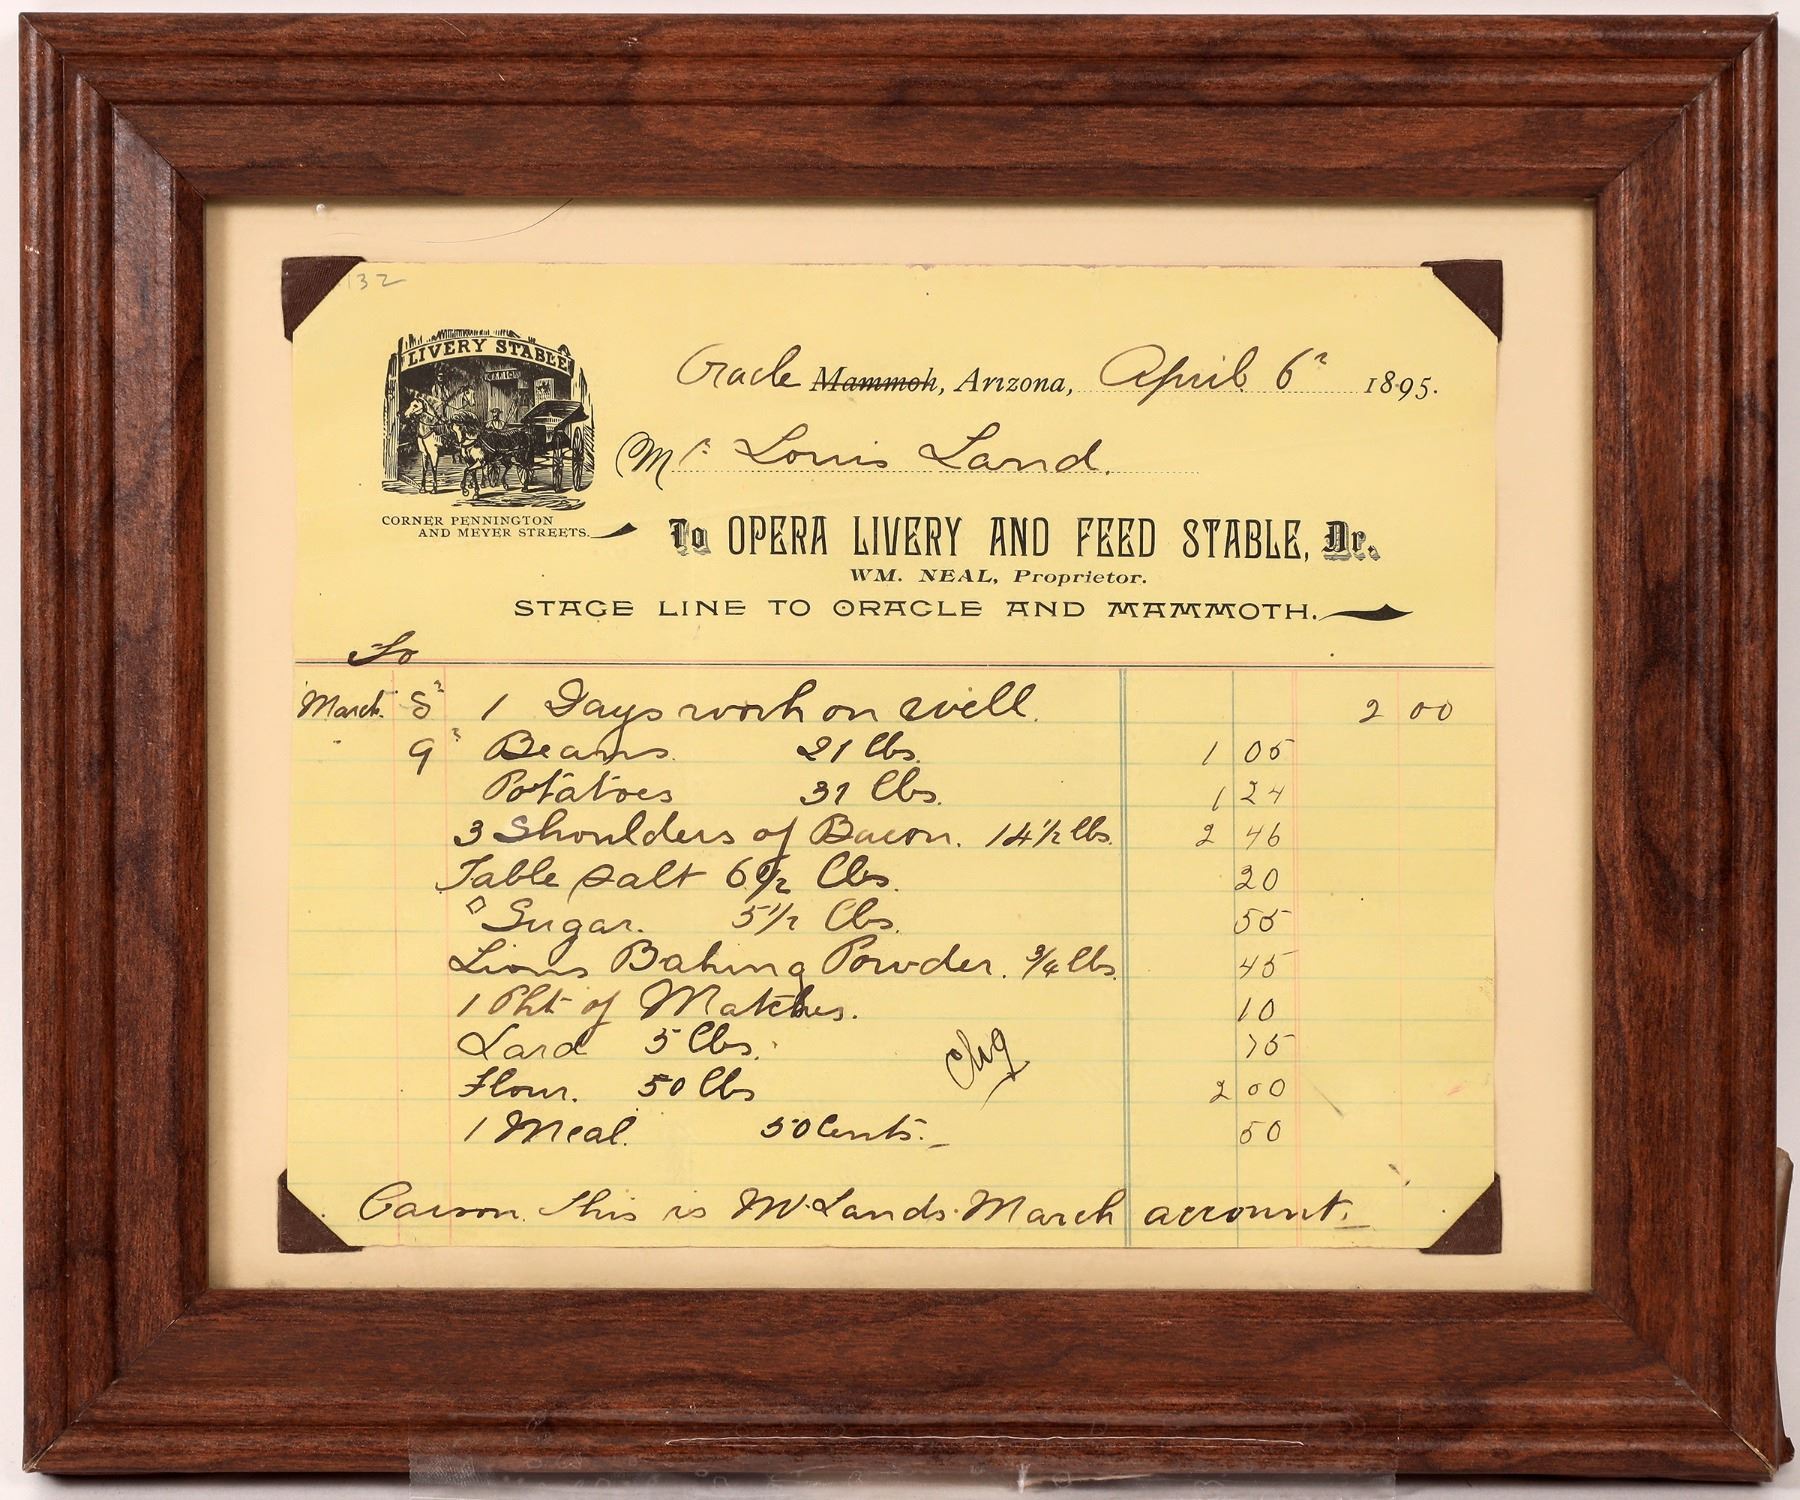 132
LIVERY STABLE
Oracle Mammoh, Arizona, April 6" 1895.
Mr. Louis Land.
CORNER PENNINGTON
AND MEYER STREETS.
To OPERA LIVERY AND FEED STABLE, Dr.
WM. NEAL, Proprietor.
STAGE LINE TO ORACLE AND MAMMOTH.
To
March 8" 1 Days work on well. 2 00
" 9" Beans. 21 lbs. 1 05
Potatoes 31 lbs. 1 24
3 Shoulders of Bacon. 14 1/2 lbs. 2 46
Table salt 6 1/2 lbs. 20
Sugar. 5 1/2 lbs. 55
Lions Baking Powder. 3/4 lbs. 45
1 Pkt of Matches. 10
Lard 5 lbs. 75
Chg
Flour. 50 lbs 2 00
1 Meal. 50 Cents. 50
this is Mr. Lands March account.